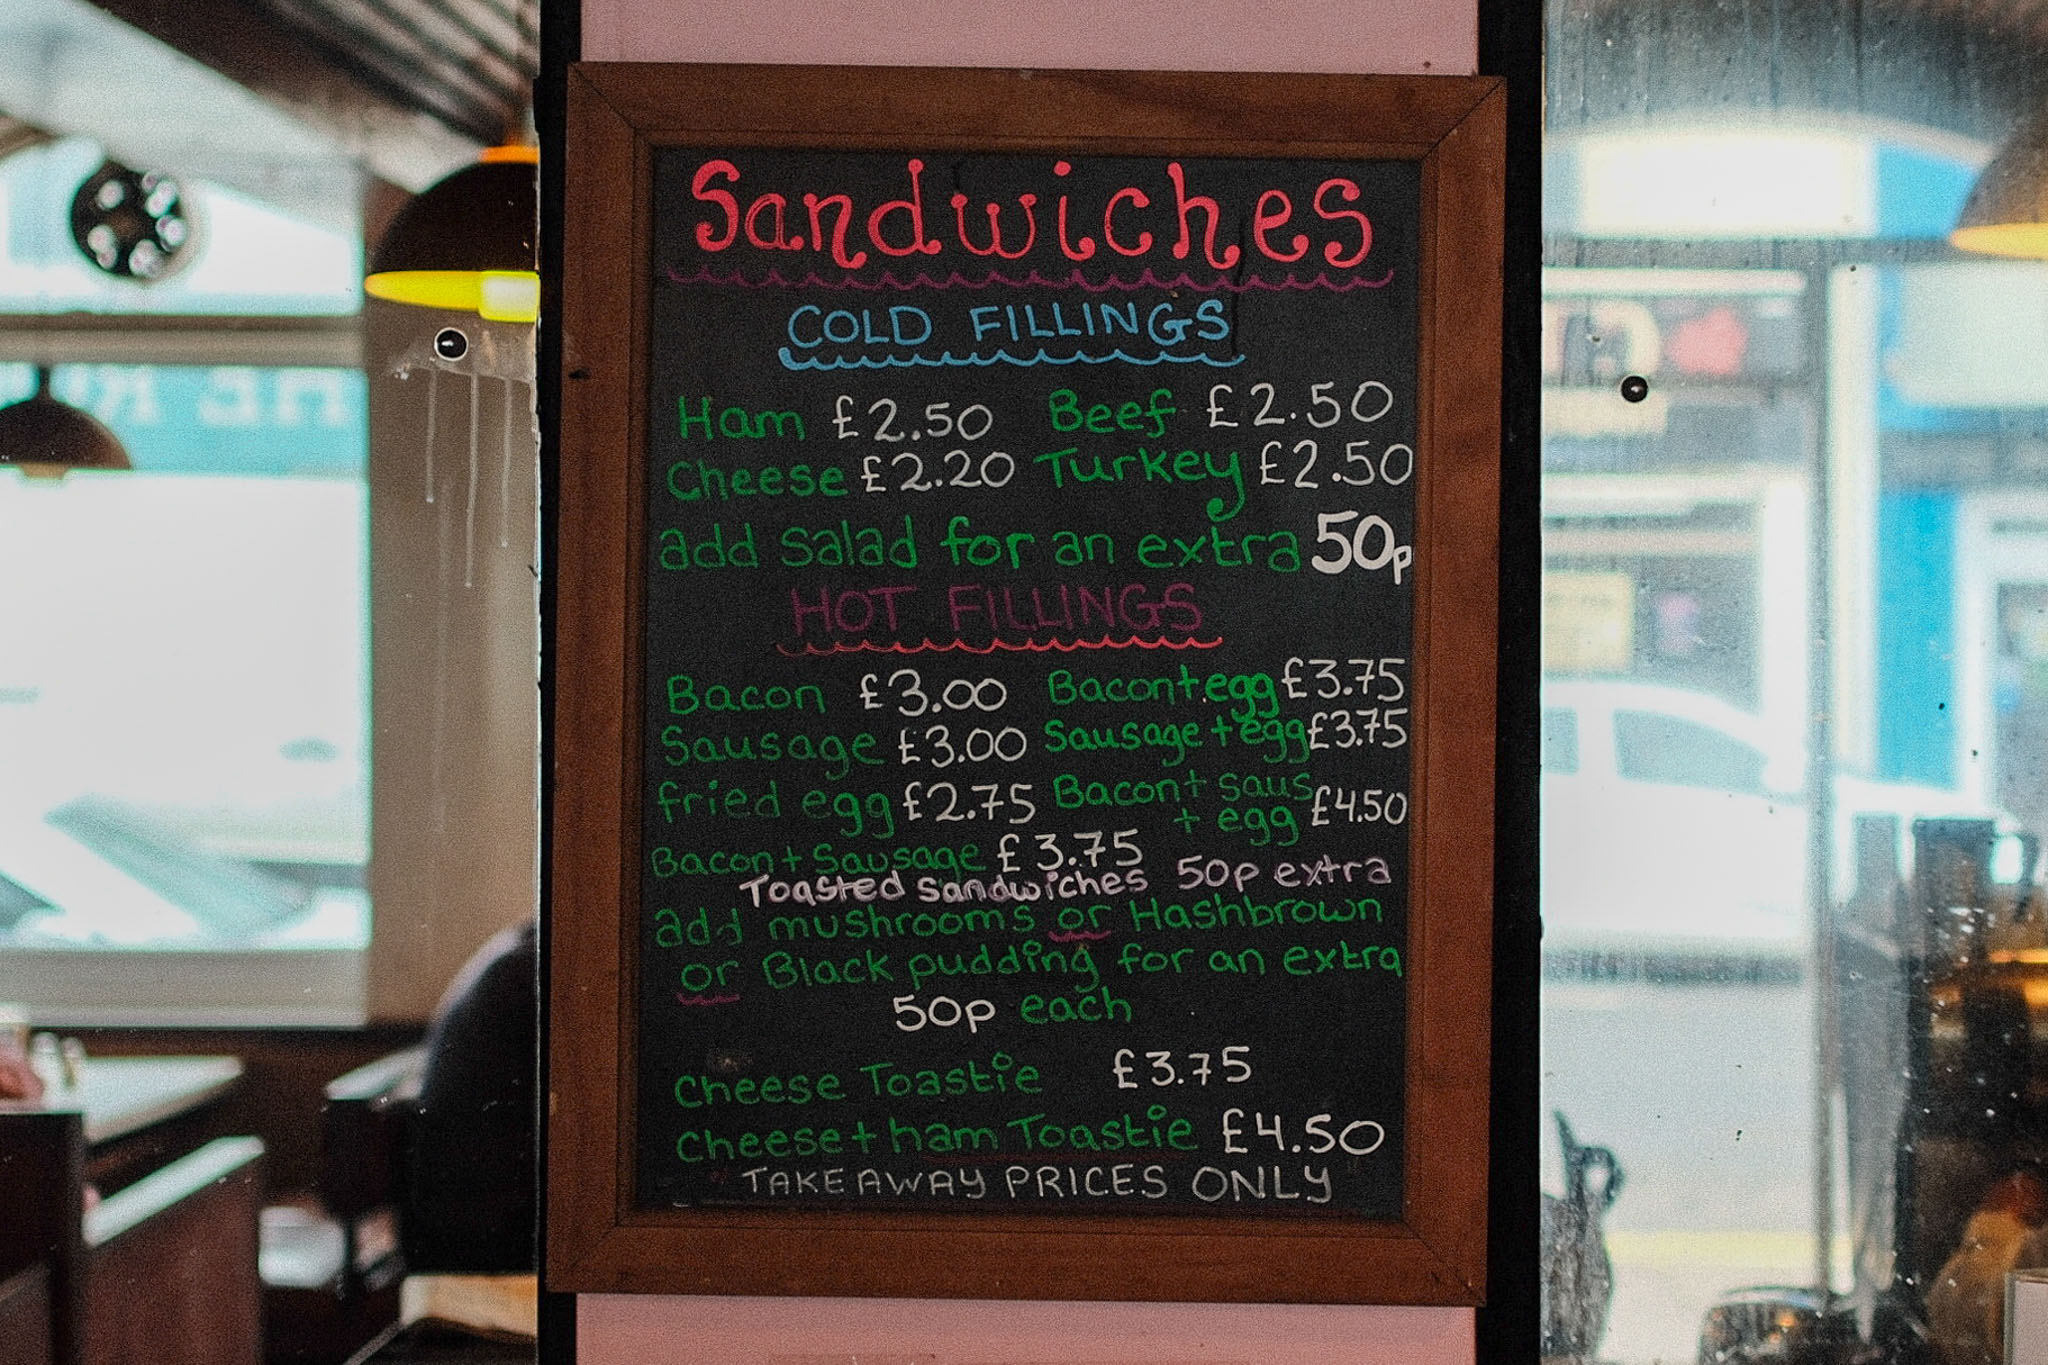 Sandwiches
COLD FILLINGS
Ham £2.50 Beef £2.50
Cheese £2.20 Turkey £2.50
add salad for an extra 50p
HOT FILLINGS
Bacon £3.00 Bacon+egg £3.75
Sausage £3.00 Sausage+egg £3.75
fried egg £2.75 Bacon+ saus
+ egg £4.50
Bacon+Sausage £3.75
Toasted sandwiches 50p extra
add mushrooms or Hashbrown
or Black pudding for an extra
50p each
Cheese Toastie £3.75
Cheese+ham Toastie £4.50
TAKE AWAY PRICES ONLY